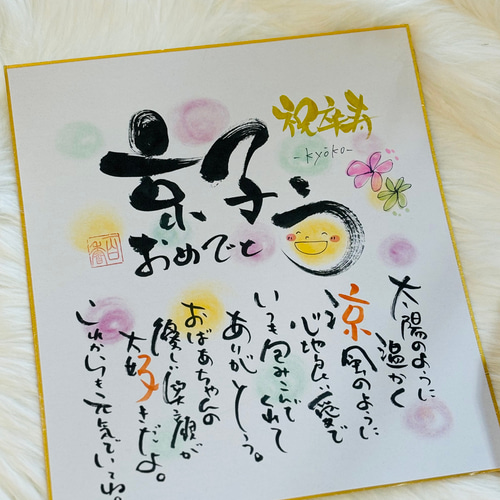 祝卒寿
-kyōko-
京子
おめでとう
太陽のように
温かく
涼風のように
心地良い愛で
いつも包みこんでくれて
ありがとう。
おばあちゃんの
優しい笑顔が
大好きだよ。
これからも元気でいてね。